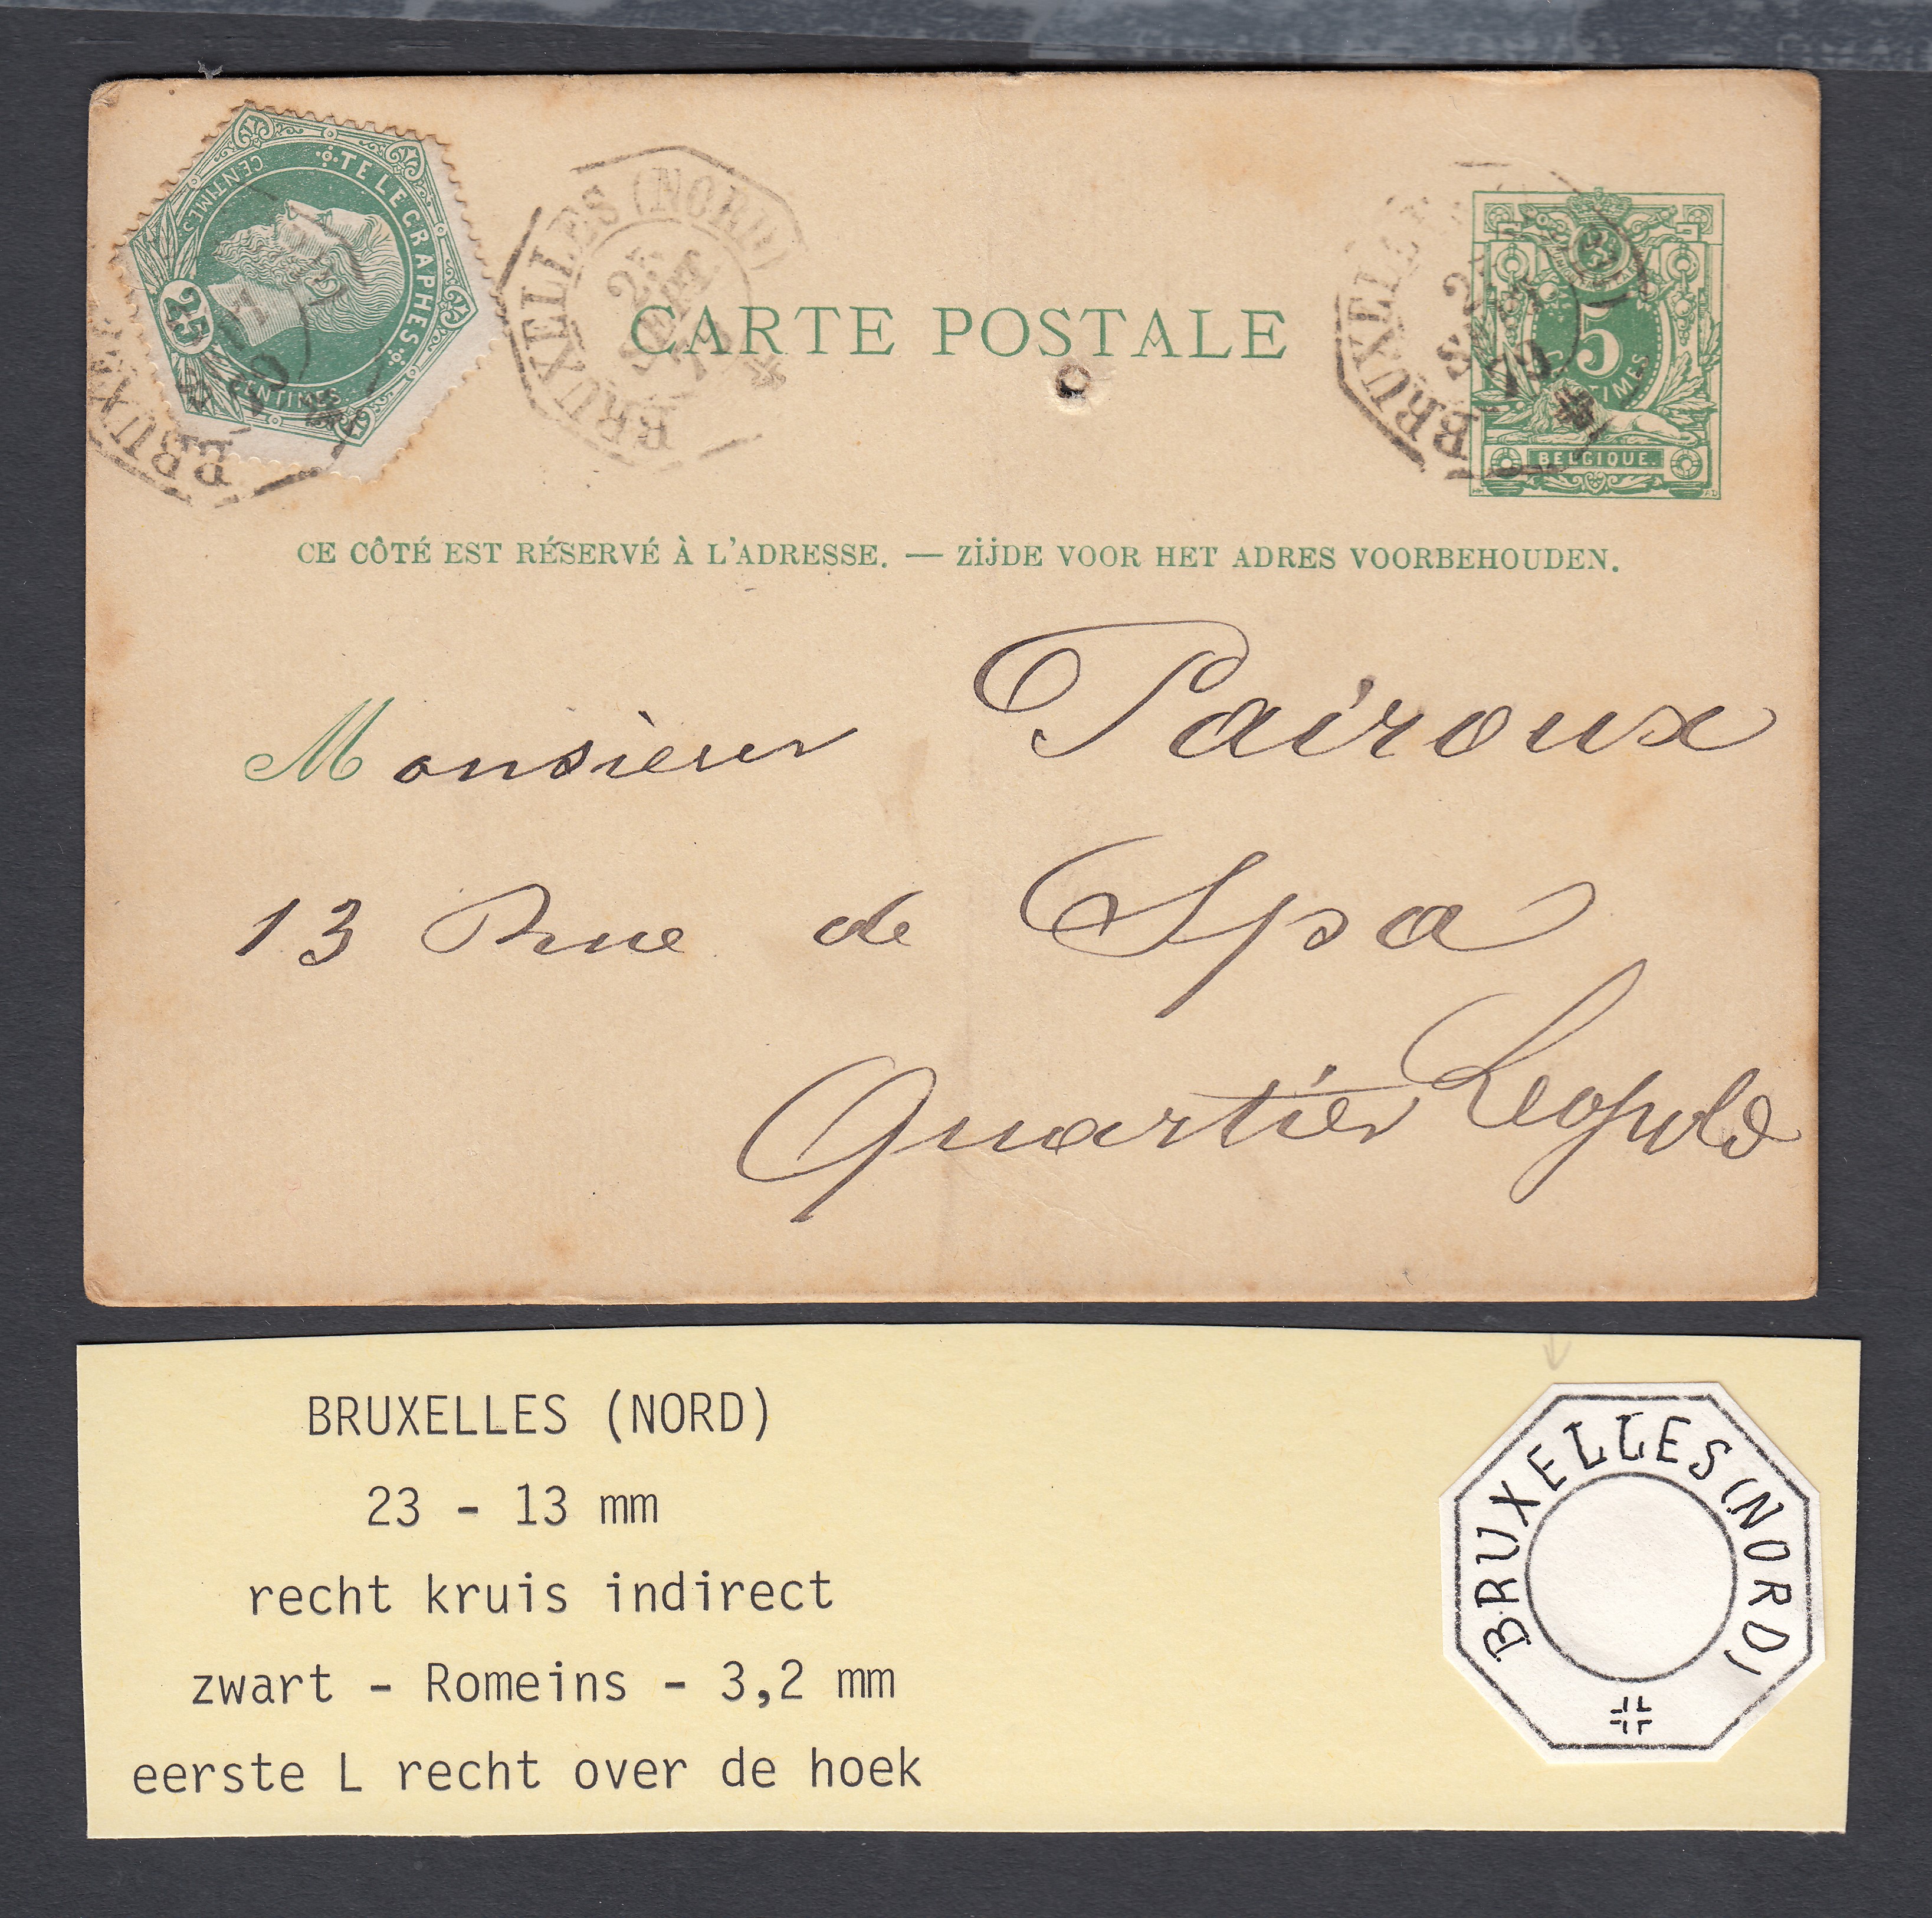 TELEGRAPHES
CENTIMES
25
CENTIMES
BRUXELLES (NORD)
25
SEPT
79
BRUXELLES
SEPT
79
5
CENTIMES
BELGIQUE.
CARTE POSTALE
CE CÔTÉ EST RÉSERVÉ À L'ADRESSE. — ZIJDE VOOR HET ADRES VOORBEHOUDEN.
Monsieur Pairoux
13 Rue de Spa
Quartier Leopold
BRUXELLES (NORD)
23 - 13 mm
recht kruis indirect
zwart - Romeins - 3,2 mm
eerste L recht over de hoek
BRUXELLES (NORD)